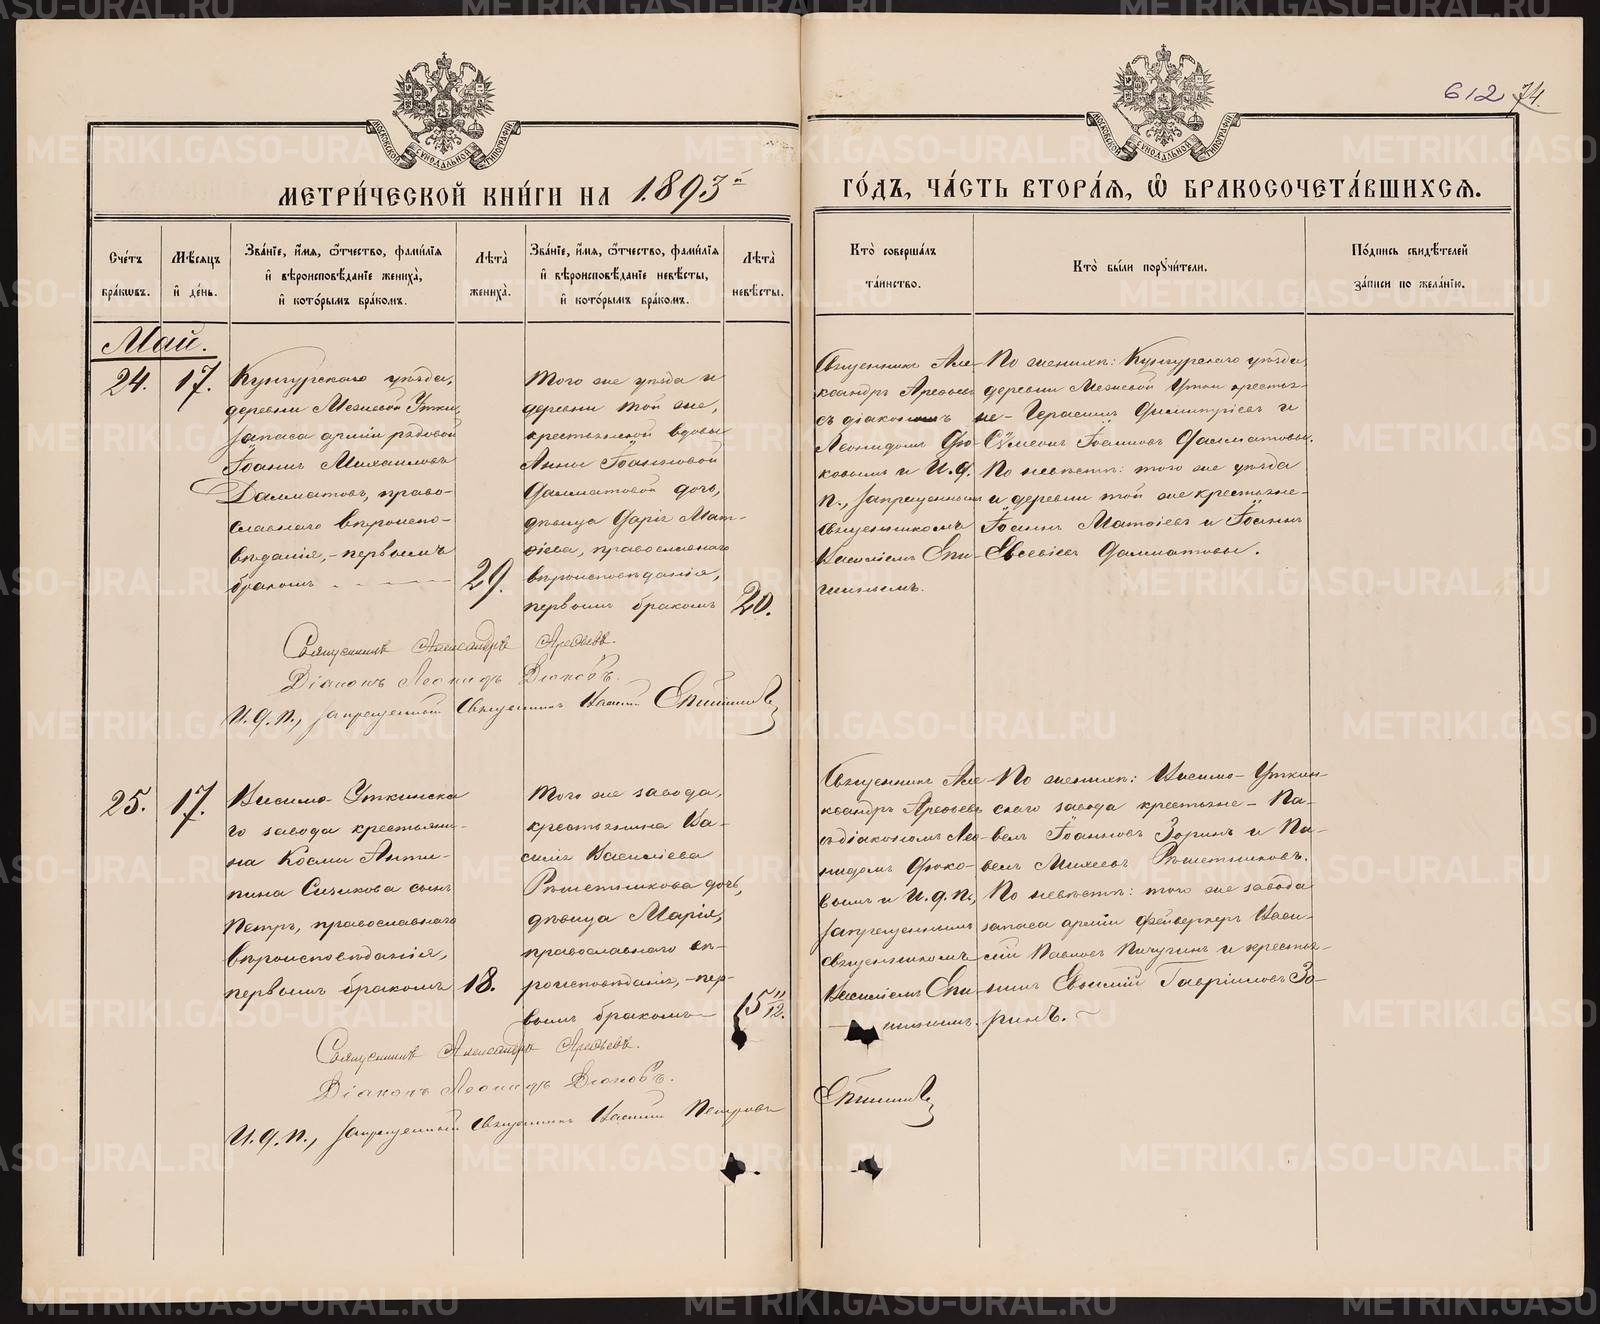 612 74.
МОСКОВСКОЙ СѴНОДАЛЬНОЙ ТИПОГРАФІИ
МОСКОВСКОЙ СѴНОДАЛЬНОЙ ТИПОГРАФІИ
МЕТРИ́ЧЕСКОЙ КНИ́ГИ НА 1893й
ГО́ДЪ, ЧА́СТЬ ВТОРА́Я, Ѿ БРАКОСОЧЕТА́ВШИХСЯ.
Сче́тъ
бра́кѡвъ.
Мѣ́сяцъ
и҆ де́нь.
Зва́нїе, и҆́мя, ѻ҆́тчество, фами́лїя
и҆ вѣроисповѣ́данїе жениха̀,
и҆ кото́рымъ бра́комъ.
Лѣта̀
жениха̀.
Зва́нїе, и҆́мя, ѻ҆́тчество, фами́лїя
и҆ вѣроисповѣ́данїе невѣ́сты,
и҆ кото́рымъ бра́комъ.
Лѣта̀
невѣ́сты.
Кто̀ соверша́лъ
та́инство.
Кто̀ бы́ли порꙋчи́тели.
По́дпись свидѣ́телей
за́писи по жела́нїю.
Май.
24.
17.
Кунгурскаго уѣзда,
деревни Межевой Утки,
запаса арміи рядовой
Іоаннъ Михаиловъ
Далматовъ, право-
славнаго вѣроиспо-
вѣданія, - первымъ
бракомъ
29.
Того же уѣзда и
деревни той же,
крестьянской вдовы
Анны Іоанновой
Далматовой дочь,
дѣвица Дарія Мат-
ѳіева, православнаго
вѣроисповѣданія,
первымъ бракомъ
20.
Священникъ Але-
ксандръ Арефьевъ
съ діакономъ
Леонидомъ Дю-
ковымъ и И. д.
п., запрещеннымъ
священникомъ
Василіемъ Епи-
шинымъ.
По женихѣ: Кунгурскаго уѣзда,
деревни Межевой Утки крестья-
не - Герасимъ Димитріевъ и
Сѵмеонъ Іоанновъ Далматовы.
По невѣстѣ: того же уѣзда
и деревни той же крестьяне -
Іоаннъ Матѳіевъ и Іоаннъ
Евсевіевъ Далматовы.
Священникъ Александръ Арефьевъ.
Діаконъ Леонидъ Дюковъ.
И. д. п., запрещенный священникъ Василій Епишинъ
25.
17.
Висимо-Уткинска-
го завода крестьяни-
на Космы Анти-
пина Сизикова сынъ
Петръ, православнаго
вѣроисповѣданія,
первымъ бракомъ
18.
Того же завода,
крестьянина Ва-
силія Василіева
Рѣшетникова дочь,
дѣвица Марія,
православнаго вѣ-
роисповѣданія, - пер-
вымъ бракомъ
15 11/12.
Священникъ Але-
ксандръ Арефьевъ
съ діакономъ Лео-
нидомъ Дюко-
вымъ и И. д. п.,
запрещеннымъ
священникомъ
Василіемъ Епи-
шинымъ.
По женихѣ: Висимо-Уткин-
скаго завода крестьяне - Па-
велъ Іоанновъ Зоринъ и Па-
велъ Михеевъ Рѣшетниковъ.
По невѣстѣ: того же завода
запаса арміи фейерверкеръ Васи-
лій Павловъ Пичугинъ и крестья-
нинъ Евѳимій Гавріиловъ Зо-
ринъ.
Священникъ Александръ Арефьевъ.
Діаконъ Леонидъ Дюковъ.
И. д. п., запрещенный священникъ Василій Петровъ
Епишинъ
METRIKI.GASO-URAL.RU